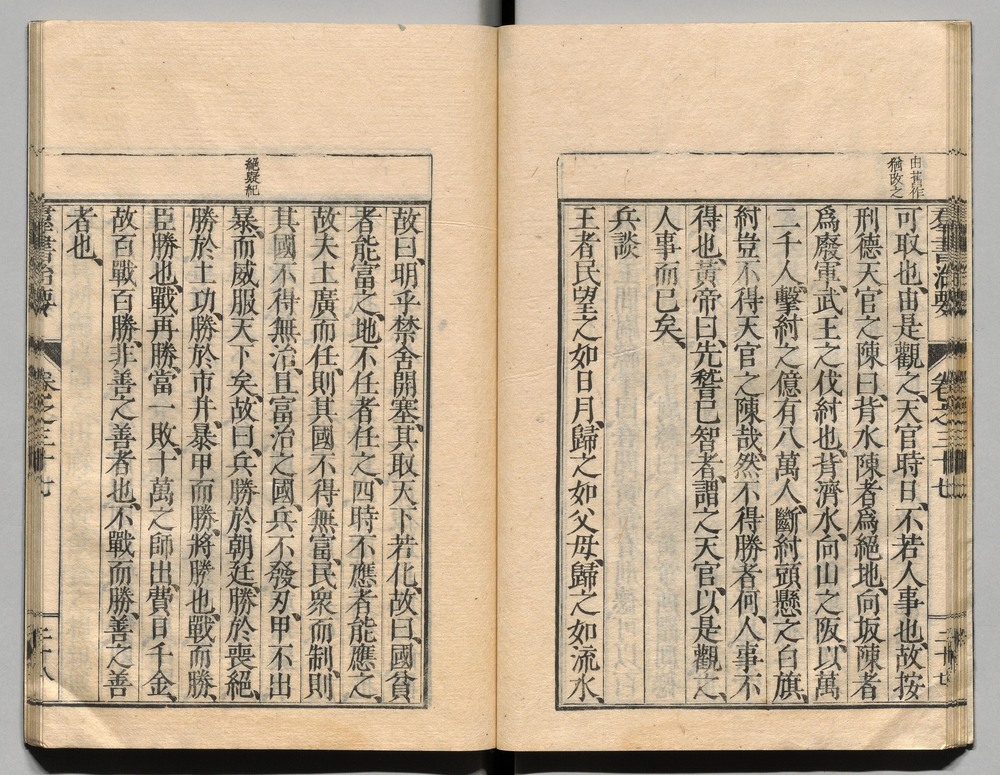 由舊作
猶改之
群書治要 卷之三十七 二十七
可取也、由是觀之、天官時日、不若人事也、故按
刑德天官之陳曰、背水陳者爲絕地、向坂陳者
爲廢軍、武王之伐紂也、背濟水、向山之阪、以萬
二千人、擊紂之億有八萬人、斷紂頭懸之白旗、
紂豈不得天官之陳哉、然不得勝者何、人事不
得也、黃帝曰、先稽已智者、謂之天官、以是觀之、
人事而已矣、
兵談
王者民望之如日月、歸之如父母、歸之如流水、
絕疑紀
故曰、明乎禁舍開塞、其取天下若化、故曰、國貧
者能富之、地不任者任之、四時不應者能應之、
故夫土廣而任、則其國不得無富、民衆而制、則
其國不得無治、且富治之國、兵不發刃、甲不出
暴、而威服天下矣、故曰、兵勝於朝廷、勝於喪絕、
勝於土功、勝於市井、暴甲而勝、將勝也、戰而勝、
臣勝也、戰再勝、當一敗、十萬之師出、費日千金、
故百戰百勝、非善之善者也、不戰而勝、善之善
者也、
群書治要 卷之三十七 二十八